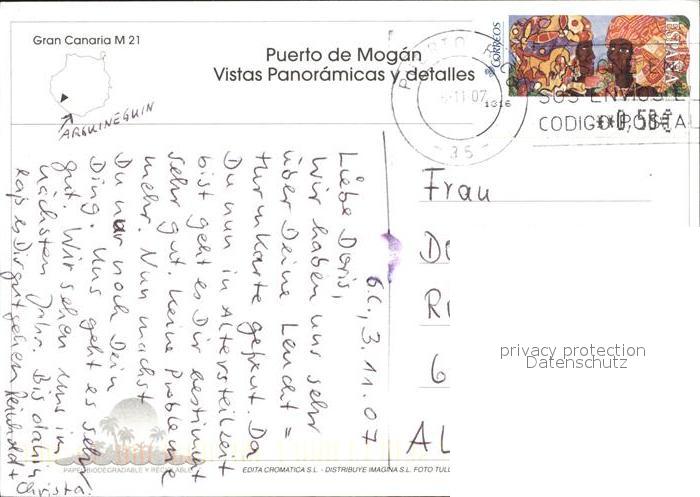 Gran Canaria M 21
ARGUINEGUIN
Puerto de Mogán
Vistas Panorámicas y detalles
CORREOS
ESPAÑA
-11 07
1316
- 35 -
SOS ENVIOS E
CODIGO POSTA
Frau
D
R
6
AL
privacy protection
Datenschutz
G.C., 3.11.07
Liebe Doris,
wir haben uns sehr
über Deine Leucht=
turmkarte gefreut. Da
Du nun in Altersteilzeit
bist geht es Dir bestimmt
sehr gut. Keine Probleme
mehr. Nun machst
Du nur noch Dein
Ding. Uns geht es sehr
gut. Wir sehen uns im
nächsten Jahr. Bis dahin
laß es Dir gut gehen Reinhold +
Christa.
PAPEL BIODEGRADABLE Y RECICLABLE
EDITA CROMATICA S.L. - DISTRIBUYE IMAGINA S.L. FOTO TULL